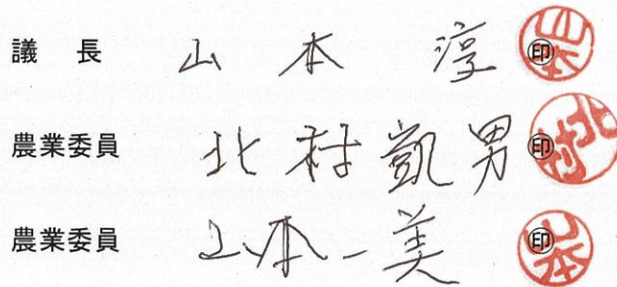 議長 山本 淳 ㊞ 山本
農業委員 北村凱男 ㊞ 北村
農業委員 山本一美 ㊞ 山本